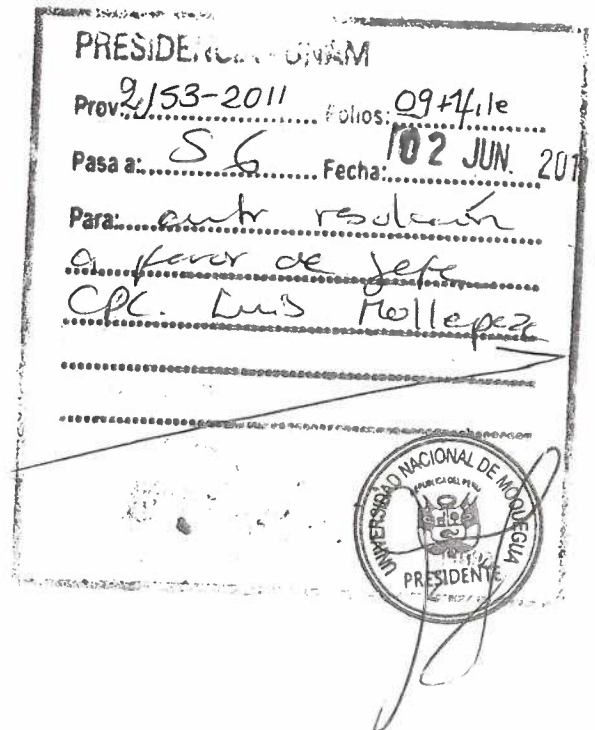 PRESIDENCIA - UNAM
Prov: 2153-2011 Folios: 09+
Pasa a: SG Fecha: 02 JUN. 201
Para: resolución
a favor de Jefe
CPC. Luis
UNIVERSIDAD NACIONAL DE MOQUEGUA
REPUBLICA DEL PERU
PRESIDENTE